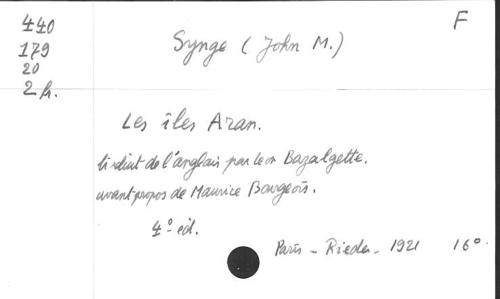 440
179
20
2 fr.
F
Synge (John M.)
Les îles Aran.
traduit de l'anglais par Leon Bazalgette.
avant propos de Maurice Bourgeois.
4º éd.
Paris - Rieder - 1921 16º